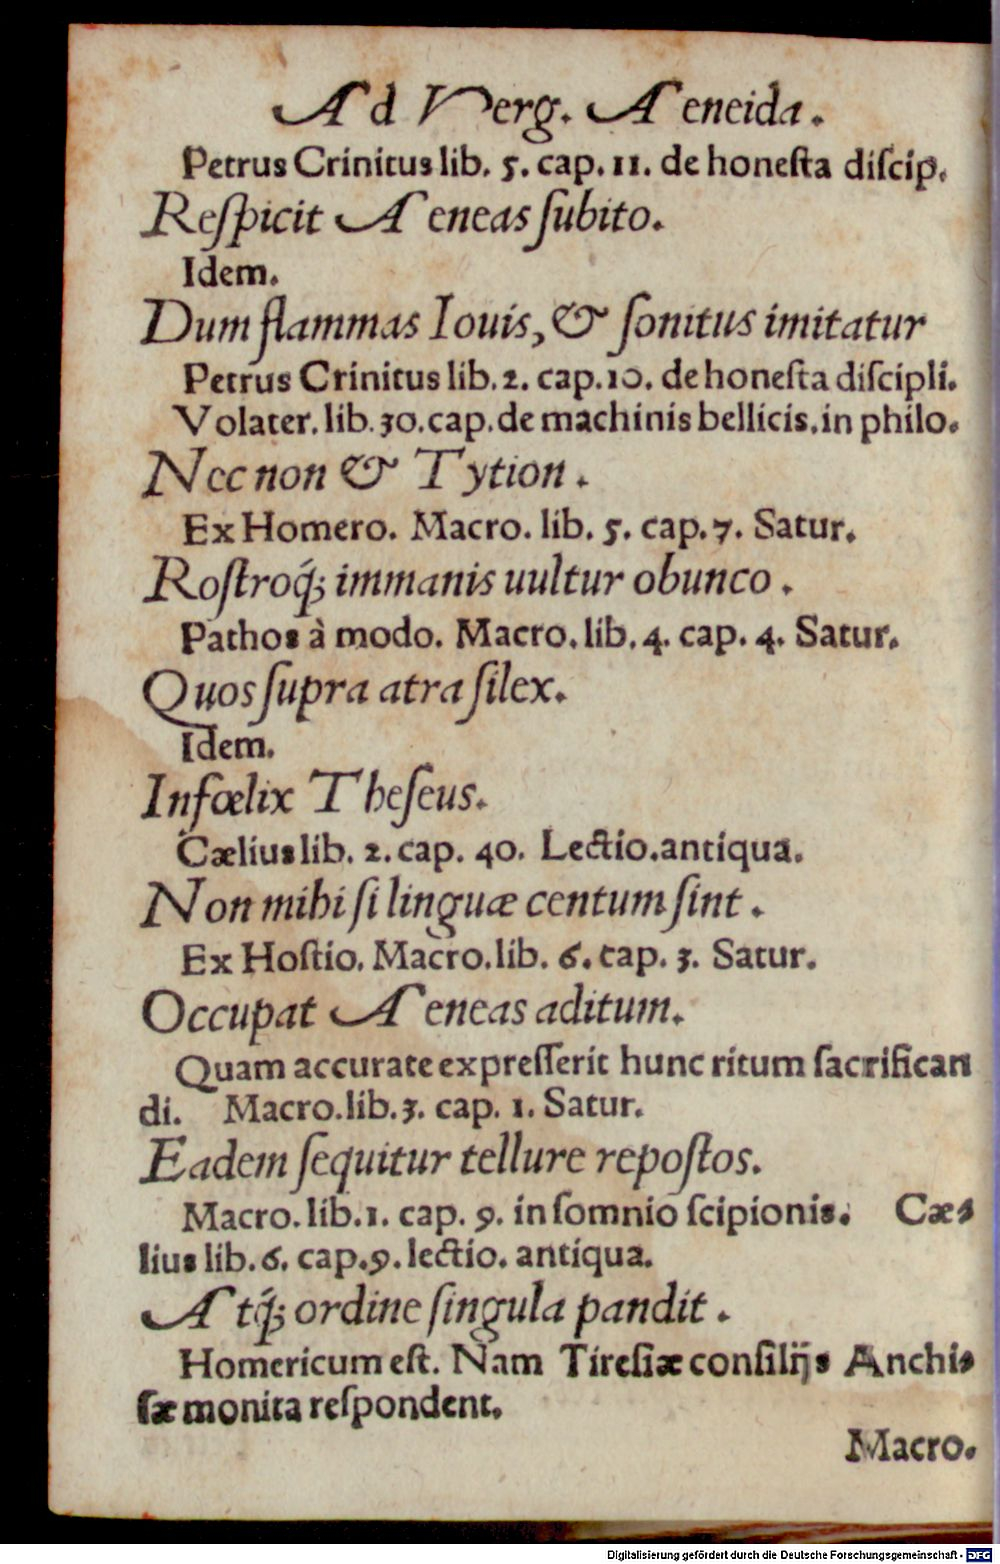 Ad Verg. Aeneida.
Petrus Crinitus lib. 5. cap. 11. de honeſta diſcip.
Reſpicit Aeneas ſubito.
Idem.
Dum flammas Iouis, & ſonitus imitatur
Petrus Crinitus lib. 2. cap. 10. de honeſta diſcipli.
Volater. lib. 30. cap. de machinis bellicis. in philo.
Nec non & Tytion.
Ex Homero. Macro. lib. 5. cap. 7. Satur.
Roſtroq́; immanis uultur obunco.
Pathos à modo. Macro. lib. 4. cap. 4. Satur.
Quos ſupra atra ſilex.
Idem.
Infœlix Theſeus.
Cælius lib. 2. cap. 40. Lectio. antiqua.
Non mihi ſi linguæ centum ſint.
Ex Hoſtio. Macro. lib. 6. cap. 3. Satur.
Occupat Aeneas aditum.
Quam accurate expreſſerit hunc ritum ſacrifican
di. Macro. lib. 3. cap. 1. Satur.
Eadem ſequitur tellure repoſtos.
Macro. lib. 1. cap. 9. in ſomnio ſcipionis. Cæ-
lius lib. 6. cap. 9. lectio. antiqua.
Atq́; ordine ſingula pandit.
Homericum eſt. Nam Tireſiæ conſilijs Anchi-
ſæ monita reſpondent.
Macro.
Digitalisierung gefördert durch die Deutsche Forschungsgemeinschaft - DFG